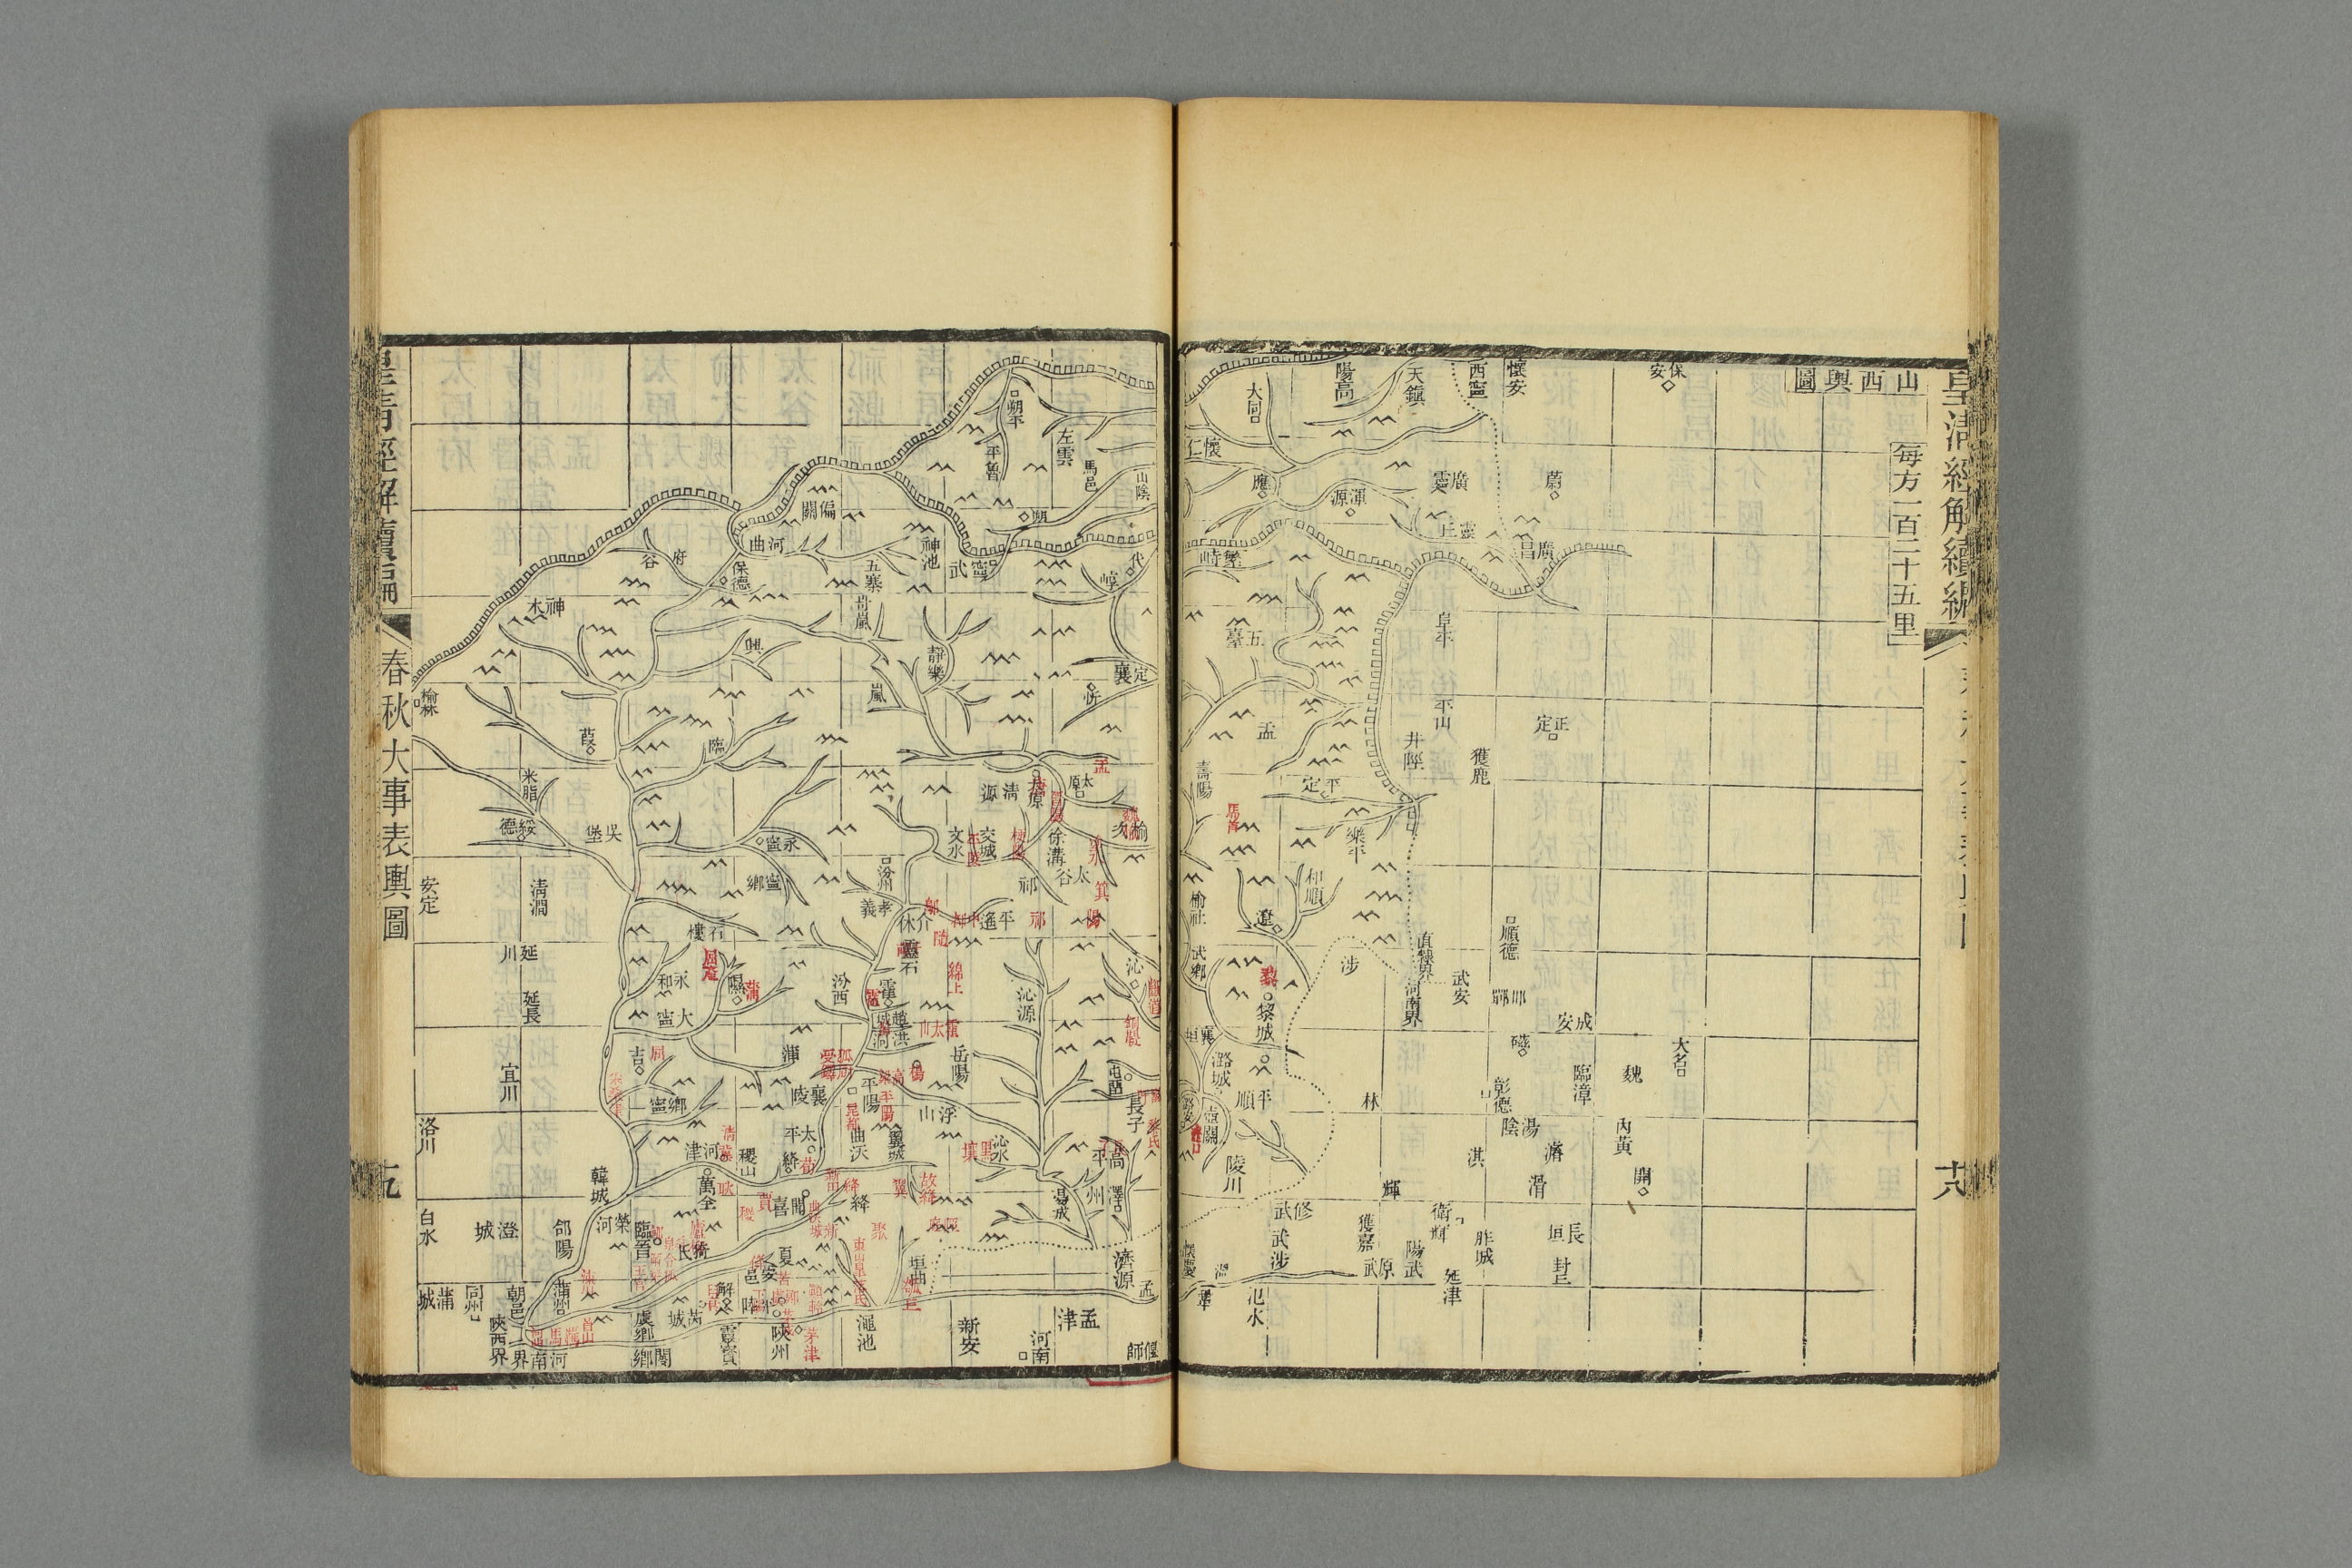 皇清經解續編
十八
山西輿圖
每方一百二十五里
保安
懷安
西寧
天鎮
陽高
大同
懷仁
應
渾源
廣靈
蔚
靈丘
廣昌
繁峙
五臺
阜平
平山
正定
獲鹿
井陘
盂
壽陽
平定
樂平
和順
遼
榆社
武鄉
順德
直隸界
河南界
武安
涉
黎
黎城
襄垣
潞城
平順
壺關
潞安
陵川
林
成安
磁
大名
魏
臨漳
彰德
湯陰
內黃
濬
淇
滑
開
輝
衛輝
胙城
長垣
封丘
延津
陽武
原武
獲嘉
修武
武涉
懷慶
溫
汜水
朔平
平魯
左雲
馬邑
山陰
朔
偏關
河曲
神池
寧武
代
崞
五寨
岢嵐
保德
府谷
神木
榆林
興
靜樂
嵐
定襄
忻
葭
臨
米脂
綏德
吳堡
永寧
寧鄉
清澗
安定
延川
延長
宜川
洛川
盂
太原
太原
清源
榆次
徐溝
交城
文水
太谷
祁
祁
箕
陽
汾州
孝義
介休
平遙
鄔
隨
靈石
綿上
石樓
永和
隰
蒲
大寧
汾西
霍
趙城
洪洞
霍太山
岳陽
沁源
沁
銅鞮
屯留
長子
吉
蒲
鄉寧
襄陵
平陽
平陽
昆都
高梁
浮山
翼城
曲沃
太平
絳
稷山
河津
清原
萬全
耿
稷
聞喜
絳
新絳
翼
故絳
沁水
高平
澤州
陽城
韓城
榮河
臨晉
猗氏
郃陽
澄城
白水
蒲城
同州
朝邑
蒲州
陝西界
河南界
首山
虞鄉
解
安邑
夏
聚
東山皋落氏
垣曲
瓠丘
濟源
孟
芮城
閿鄉
靈寶
陝州
茅津
澠池
新安
河南
孟津
偃師
皇清經解續編
春秋大事表輿圖
十九